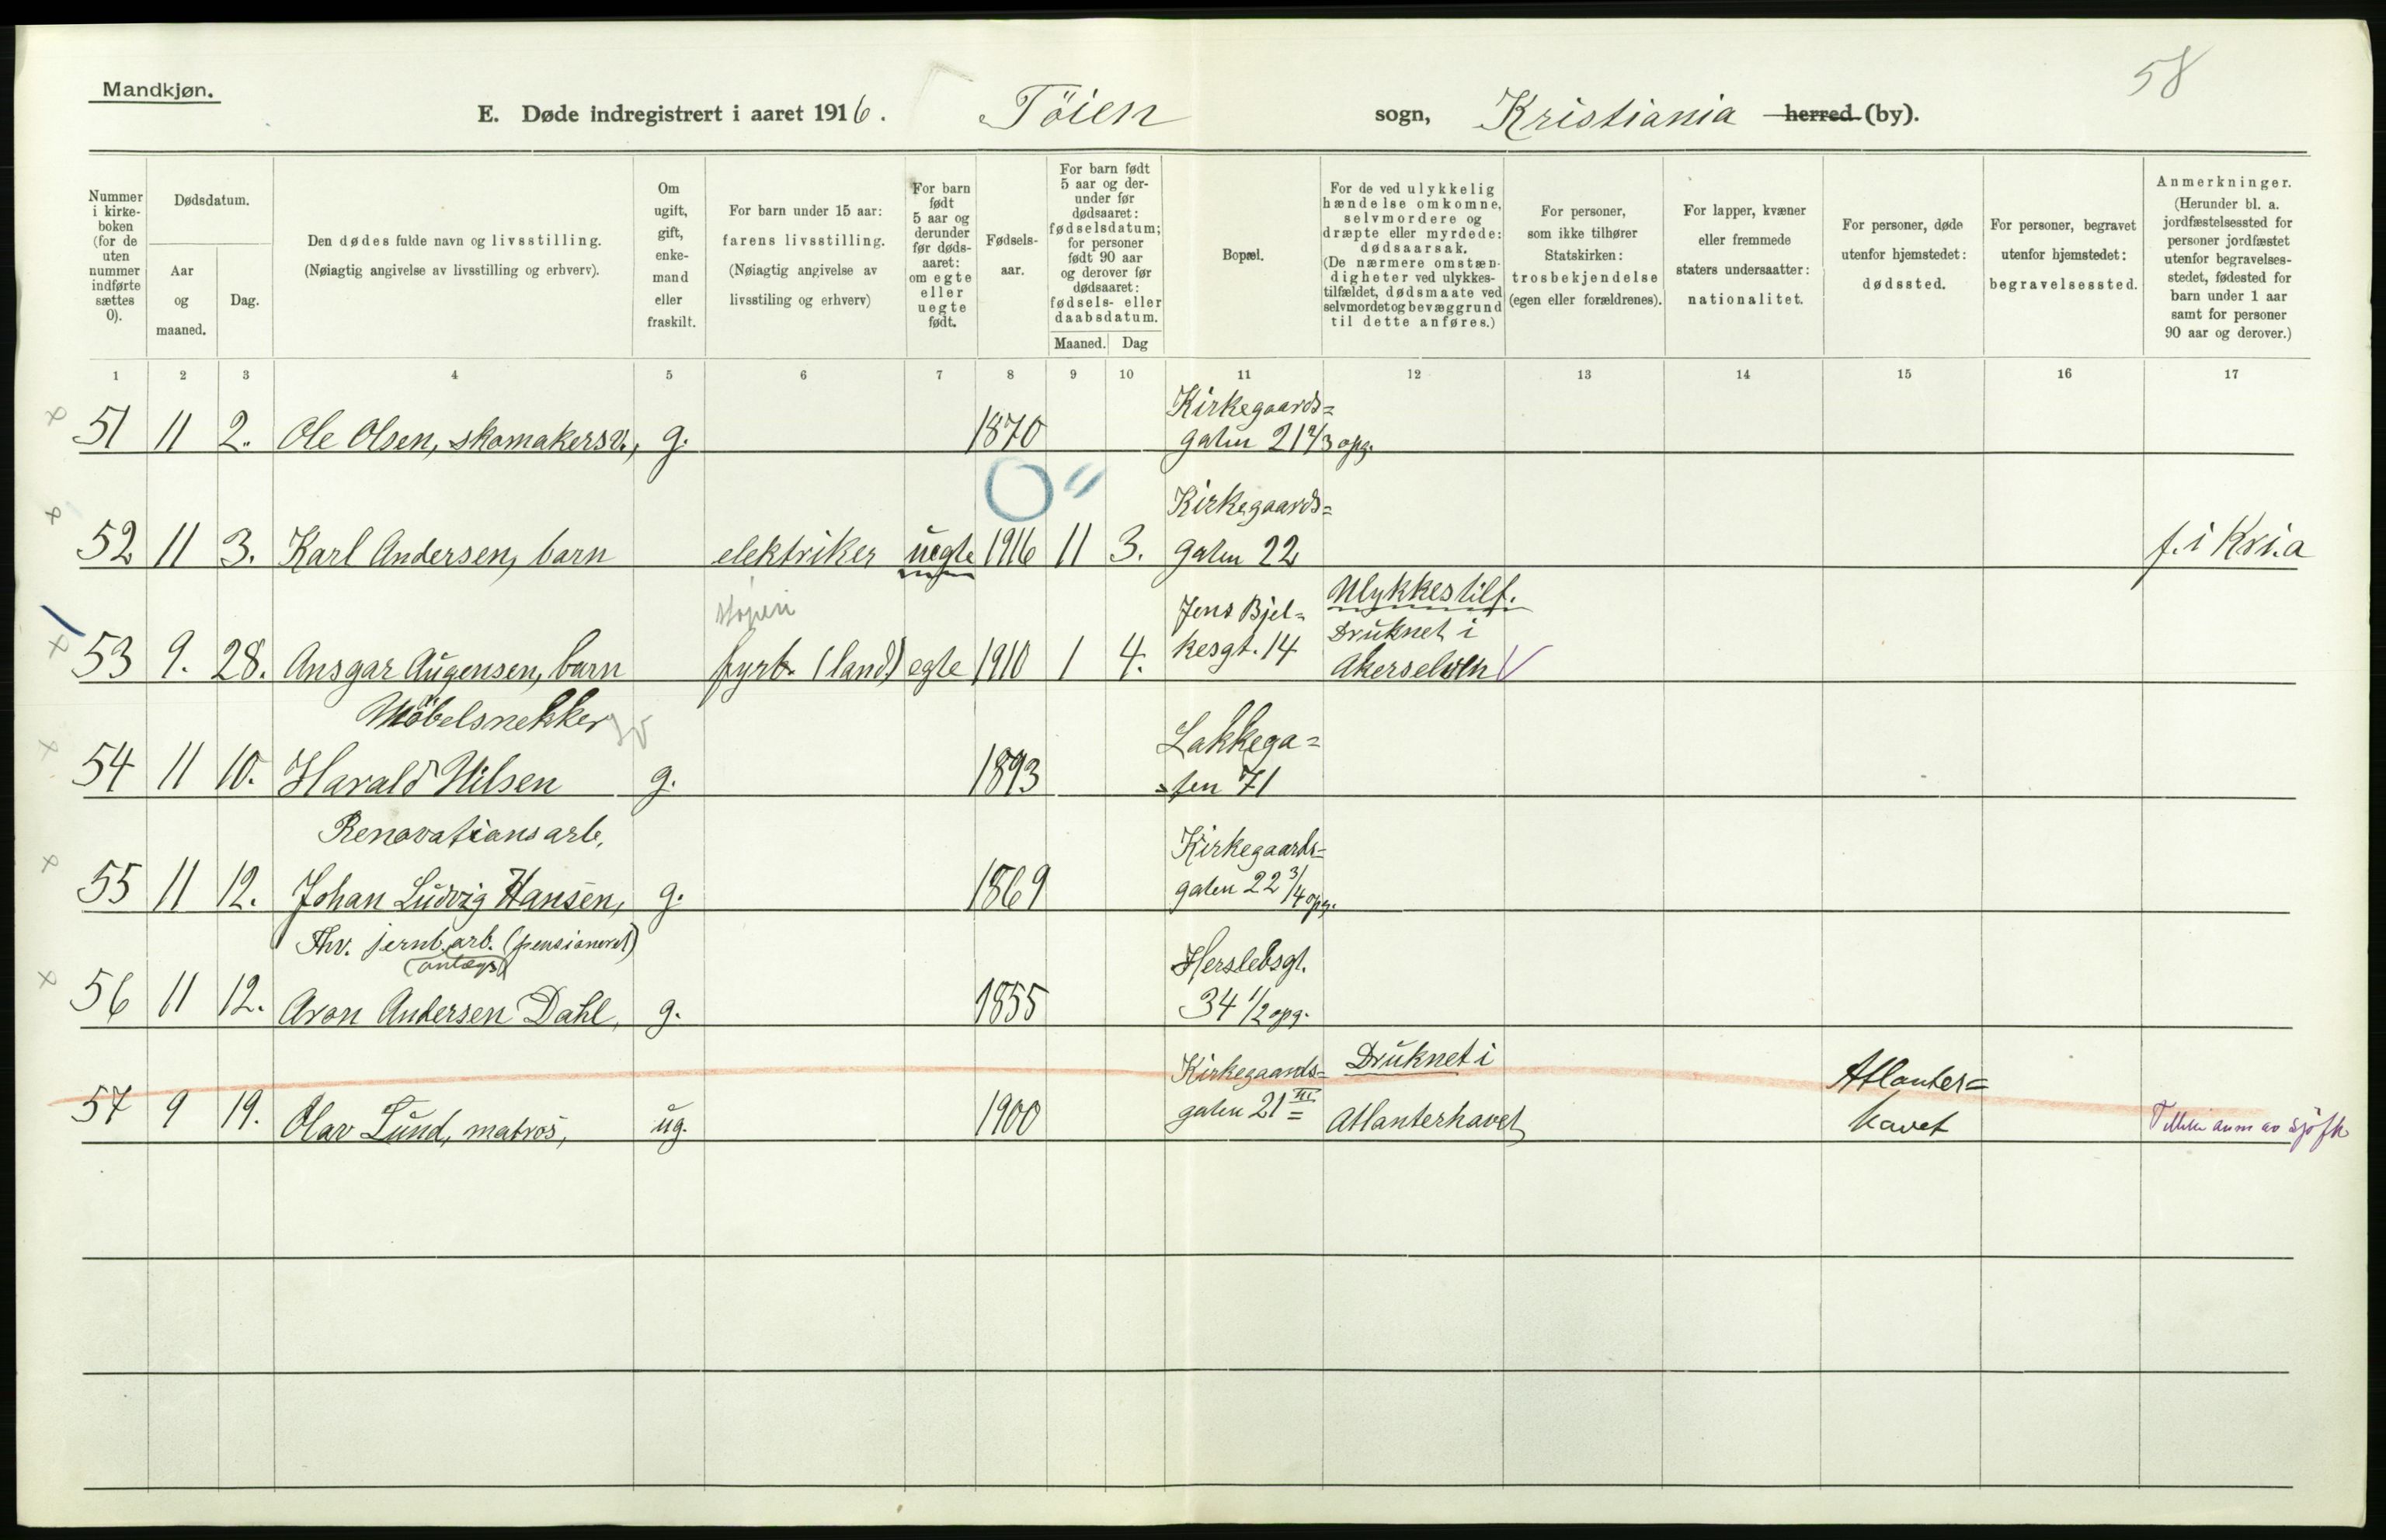 58
Mandkjøn.
E. Døde indregistrert i aaret 1916. Töien sogn, Kristiania herred (by).
Nummer i kirke-boken (for de uten nummer indførte sættes 0).
Dødsdatum.
Aar og maaned.
Dag.
Den dødes fulde navn og livsstilling.
(Nøiagtig angivelse av livsstilling og erhverv).
Om ugift, gift, enke-mand eller fraskilt.
For barn under 15 aar:
farens livsstilling.
(Nøiagtig angivelse av
livsstiling og erhverv)
For barn født 5 aar og derunder før døds-aaret: om egte eller uegte født.
Fødsels-aar.
For barn født 5 aar og der-under før dødsaaret: fødselsdatum; for personer født 90 aar og derover før dødsaaret: fødsels- eller daabsdatum.
Maaned. Dag
Bopæl.
For de ved ulykkelig hændelse omkomne, selvmordere og dræpte eller myrdede: dødsaarsak.
(De nærmere omstæn-digheter ved ulykkes-tilfældet, dødsmaate ved selvmordet og bevæggrund til dette anføres.)
For personer, som ikke tilhører Statskirken: trosbekjendelse (egen eller forældrenes).
For lapper, kvæner eller fremmede staters undersaatter: nationalitet.
For personer, døde utenfor hjemstedet: dødssted.
For personer, begravet utenfor hjemstedet: begravelsessted.
Anmerkninger.
(Herunder bl. a. jordfæstelsessted for personer jordfæstet utenfor begravelses-stedet, fødested for barn under 1 aar samt for personer 90 aar og derover.)
1 2 3 4 5 6 7 8 9 10 11 12 13 14 15 16 17
Kirkegaards=
51 11 2. Ole Olsen, skomakersv., g. 1870 gaten 21 2/3 opg.
Kirkegaards=
52 11 3. Karl Andersen, barn elektriker uegte 1916 11 3. gaten 22 f. i Kri.a
Jens Bjel= Ulykkestilf.
Druknet i
53 9. 28. Ansgar Augensen, barn fyrb. (land) egte 1910 1 4. kesgt. 14 Akerselven
Möbelsnekker Lakkega=
54 11 10. Harald Nilsen g. 1893 =ten 71
Renovationsarb. Kirkegaards=
55 11 12. Johan Ludvig Hansen, g. 1869 gaten 22 3/4 opg.
Fhv. jernb. arb. (pensioneret) Herslebsgt.
(anlægs)
56 11 12. Aron Andersen Dahl, g. 1855 34 1/2 opg.
Kirkegaards= Druknet i Atlanter=
57 9 19. Olav Lund, matros, ug. 1900 gaten 21 III Atlanterhavet havet av sjöfk